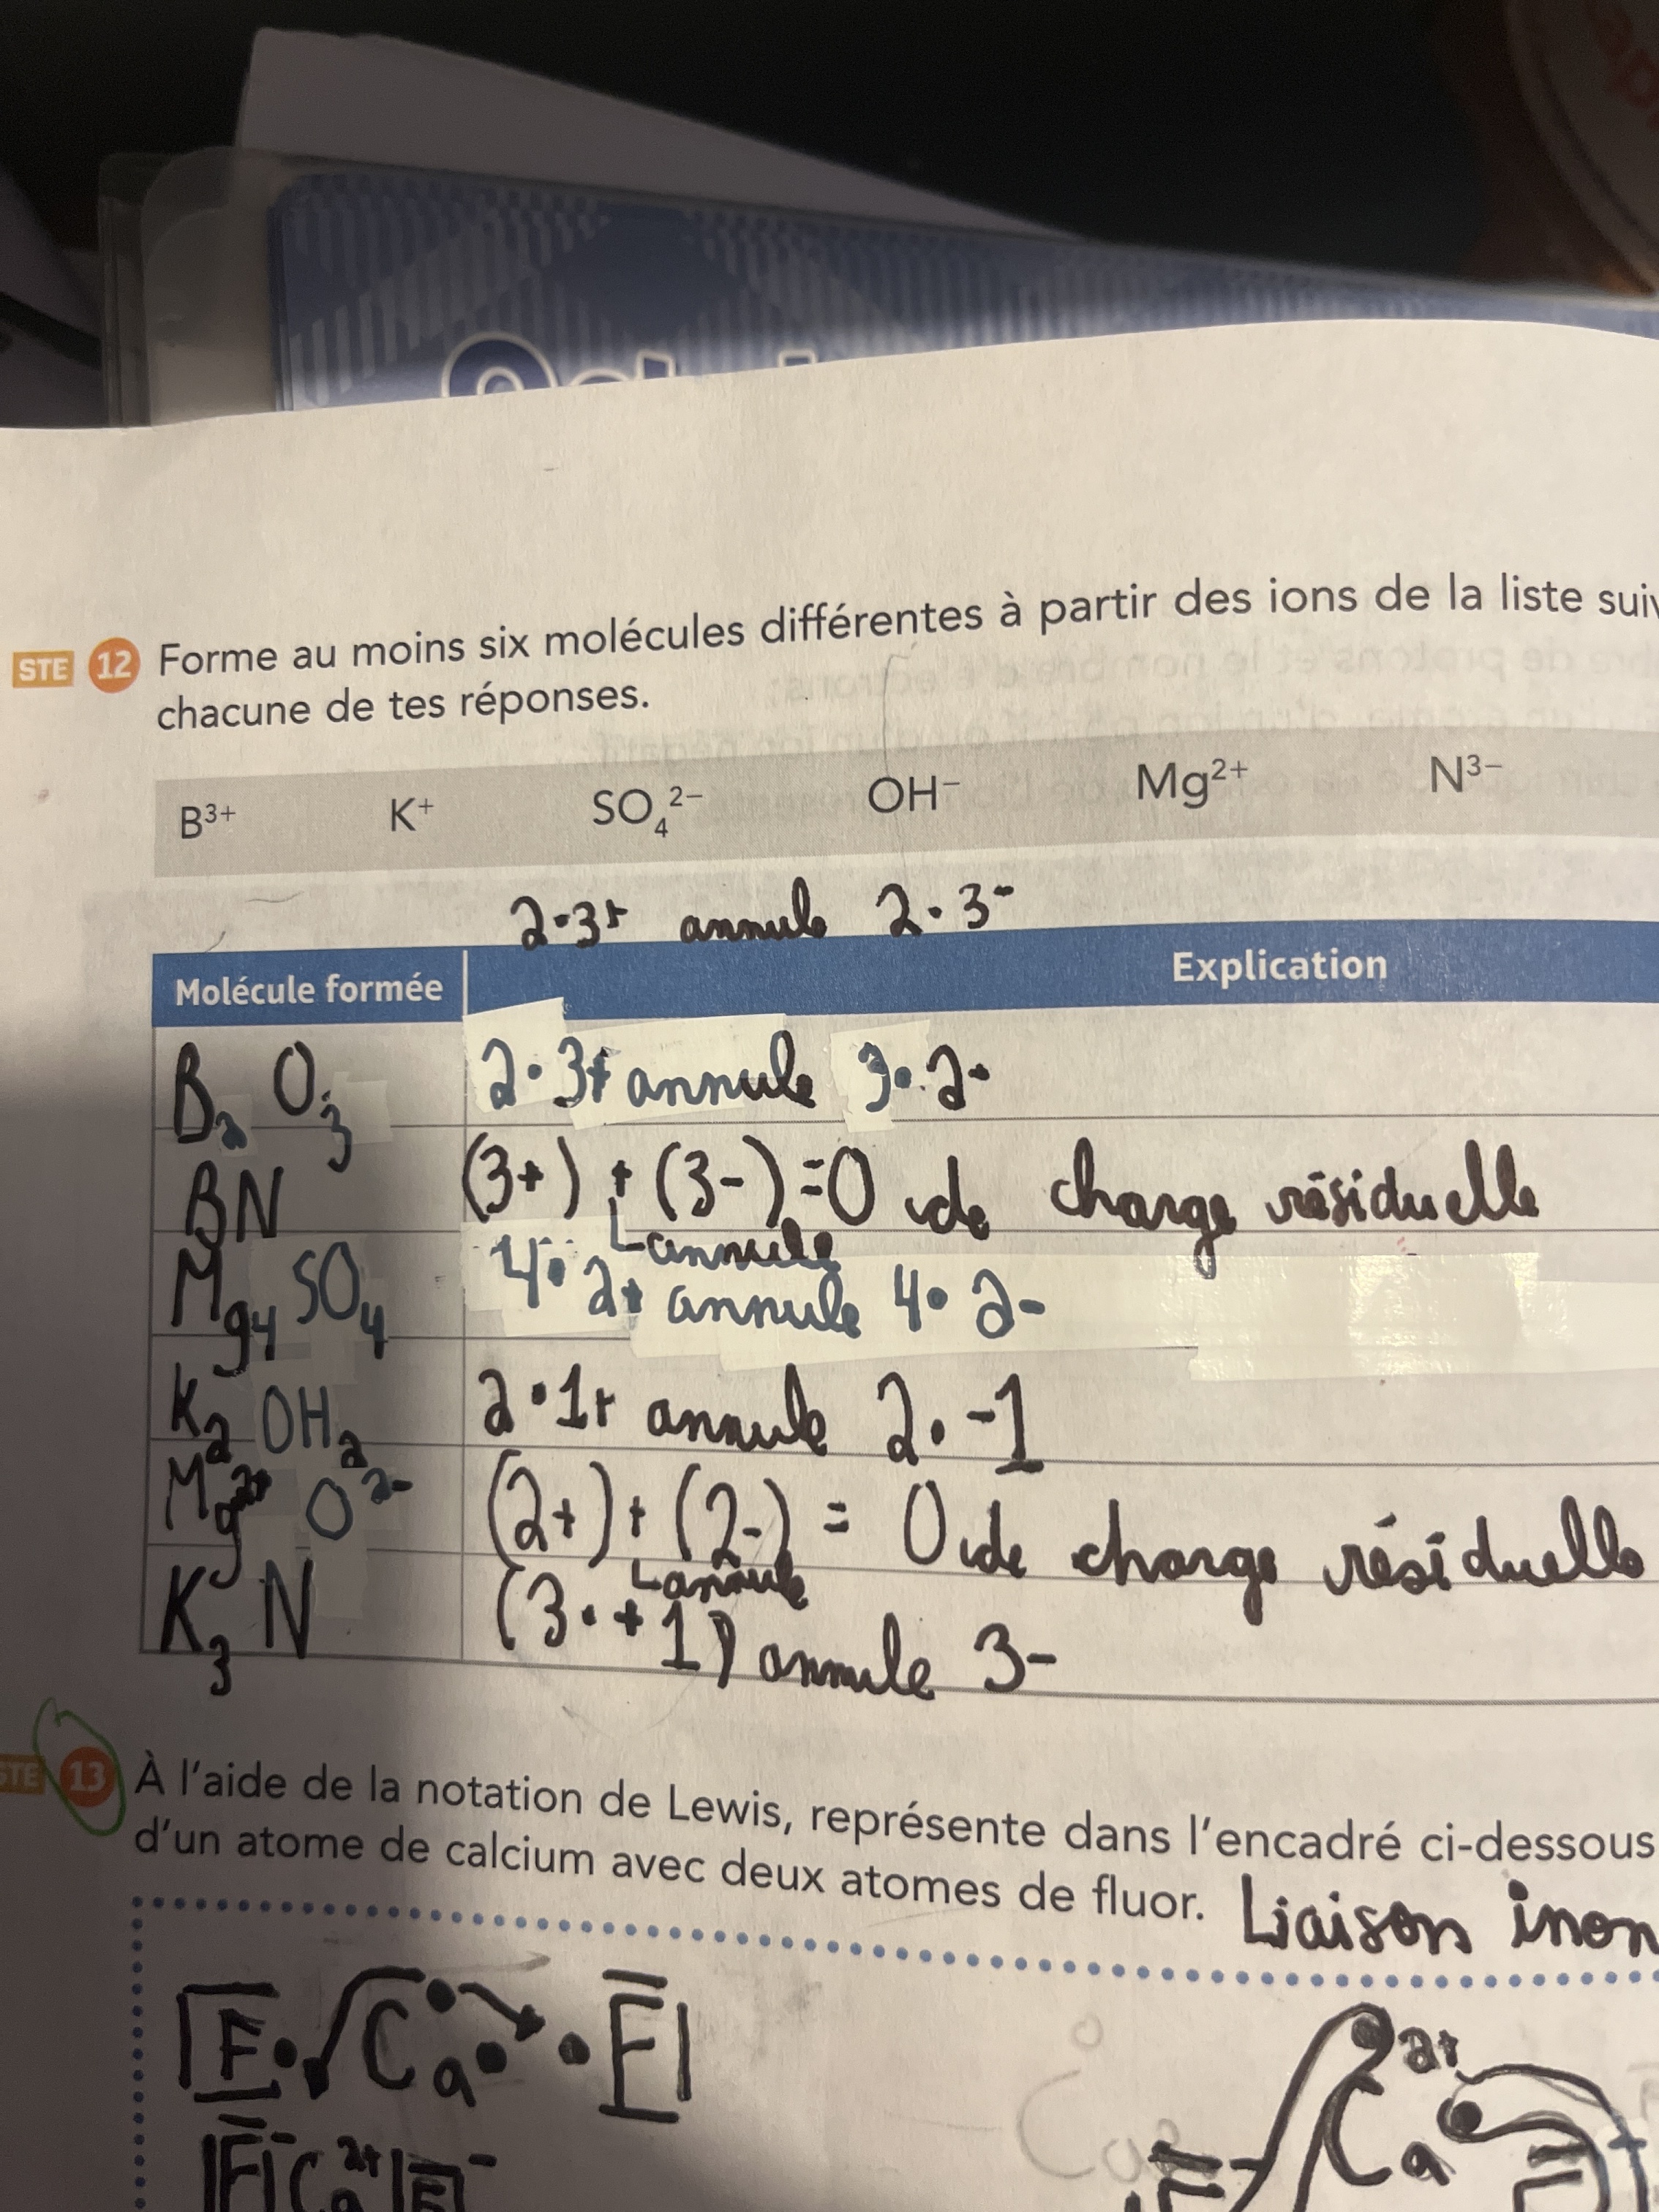 STE 12 Forme au moins six molécules différentes à partir des ions de la liste
chacune de tes réponses.
B³⁺ K⁺ SO₄²⁻ OH⁻ Mg²⁺ N³⁻
2·3+ annule 2·3-
Molécule formée Explication
B₂ O₃ 2·3+ annule 3·2-
BN (3+) + (3-) = 0 de charge résiduelle
annule
Mg₄ SO₄ 4·2+ annule 4·2-
K₂ OH₂ 2·1+ annule 2·-1
Mg²⁺ O²⁻ (2+) + (2-) = 0 de charge résiduelle
annule
K₃ N (3·+1) annule 3-
STE 13 À l'aide de la notation de Lewis, représente dans l'encadré ci-dessous
d'un atome de calcium avec deux atomes de fluor. Liaison
F Ca F
Ca²⁺
F⁻ Ca²⁺ F⁻